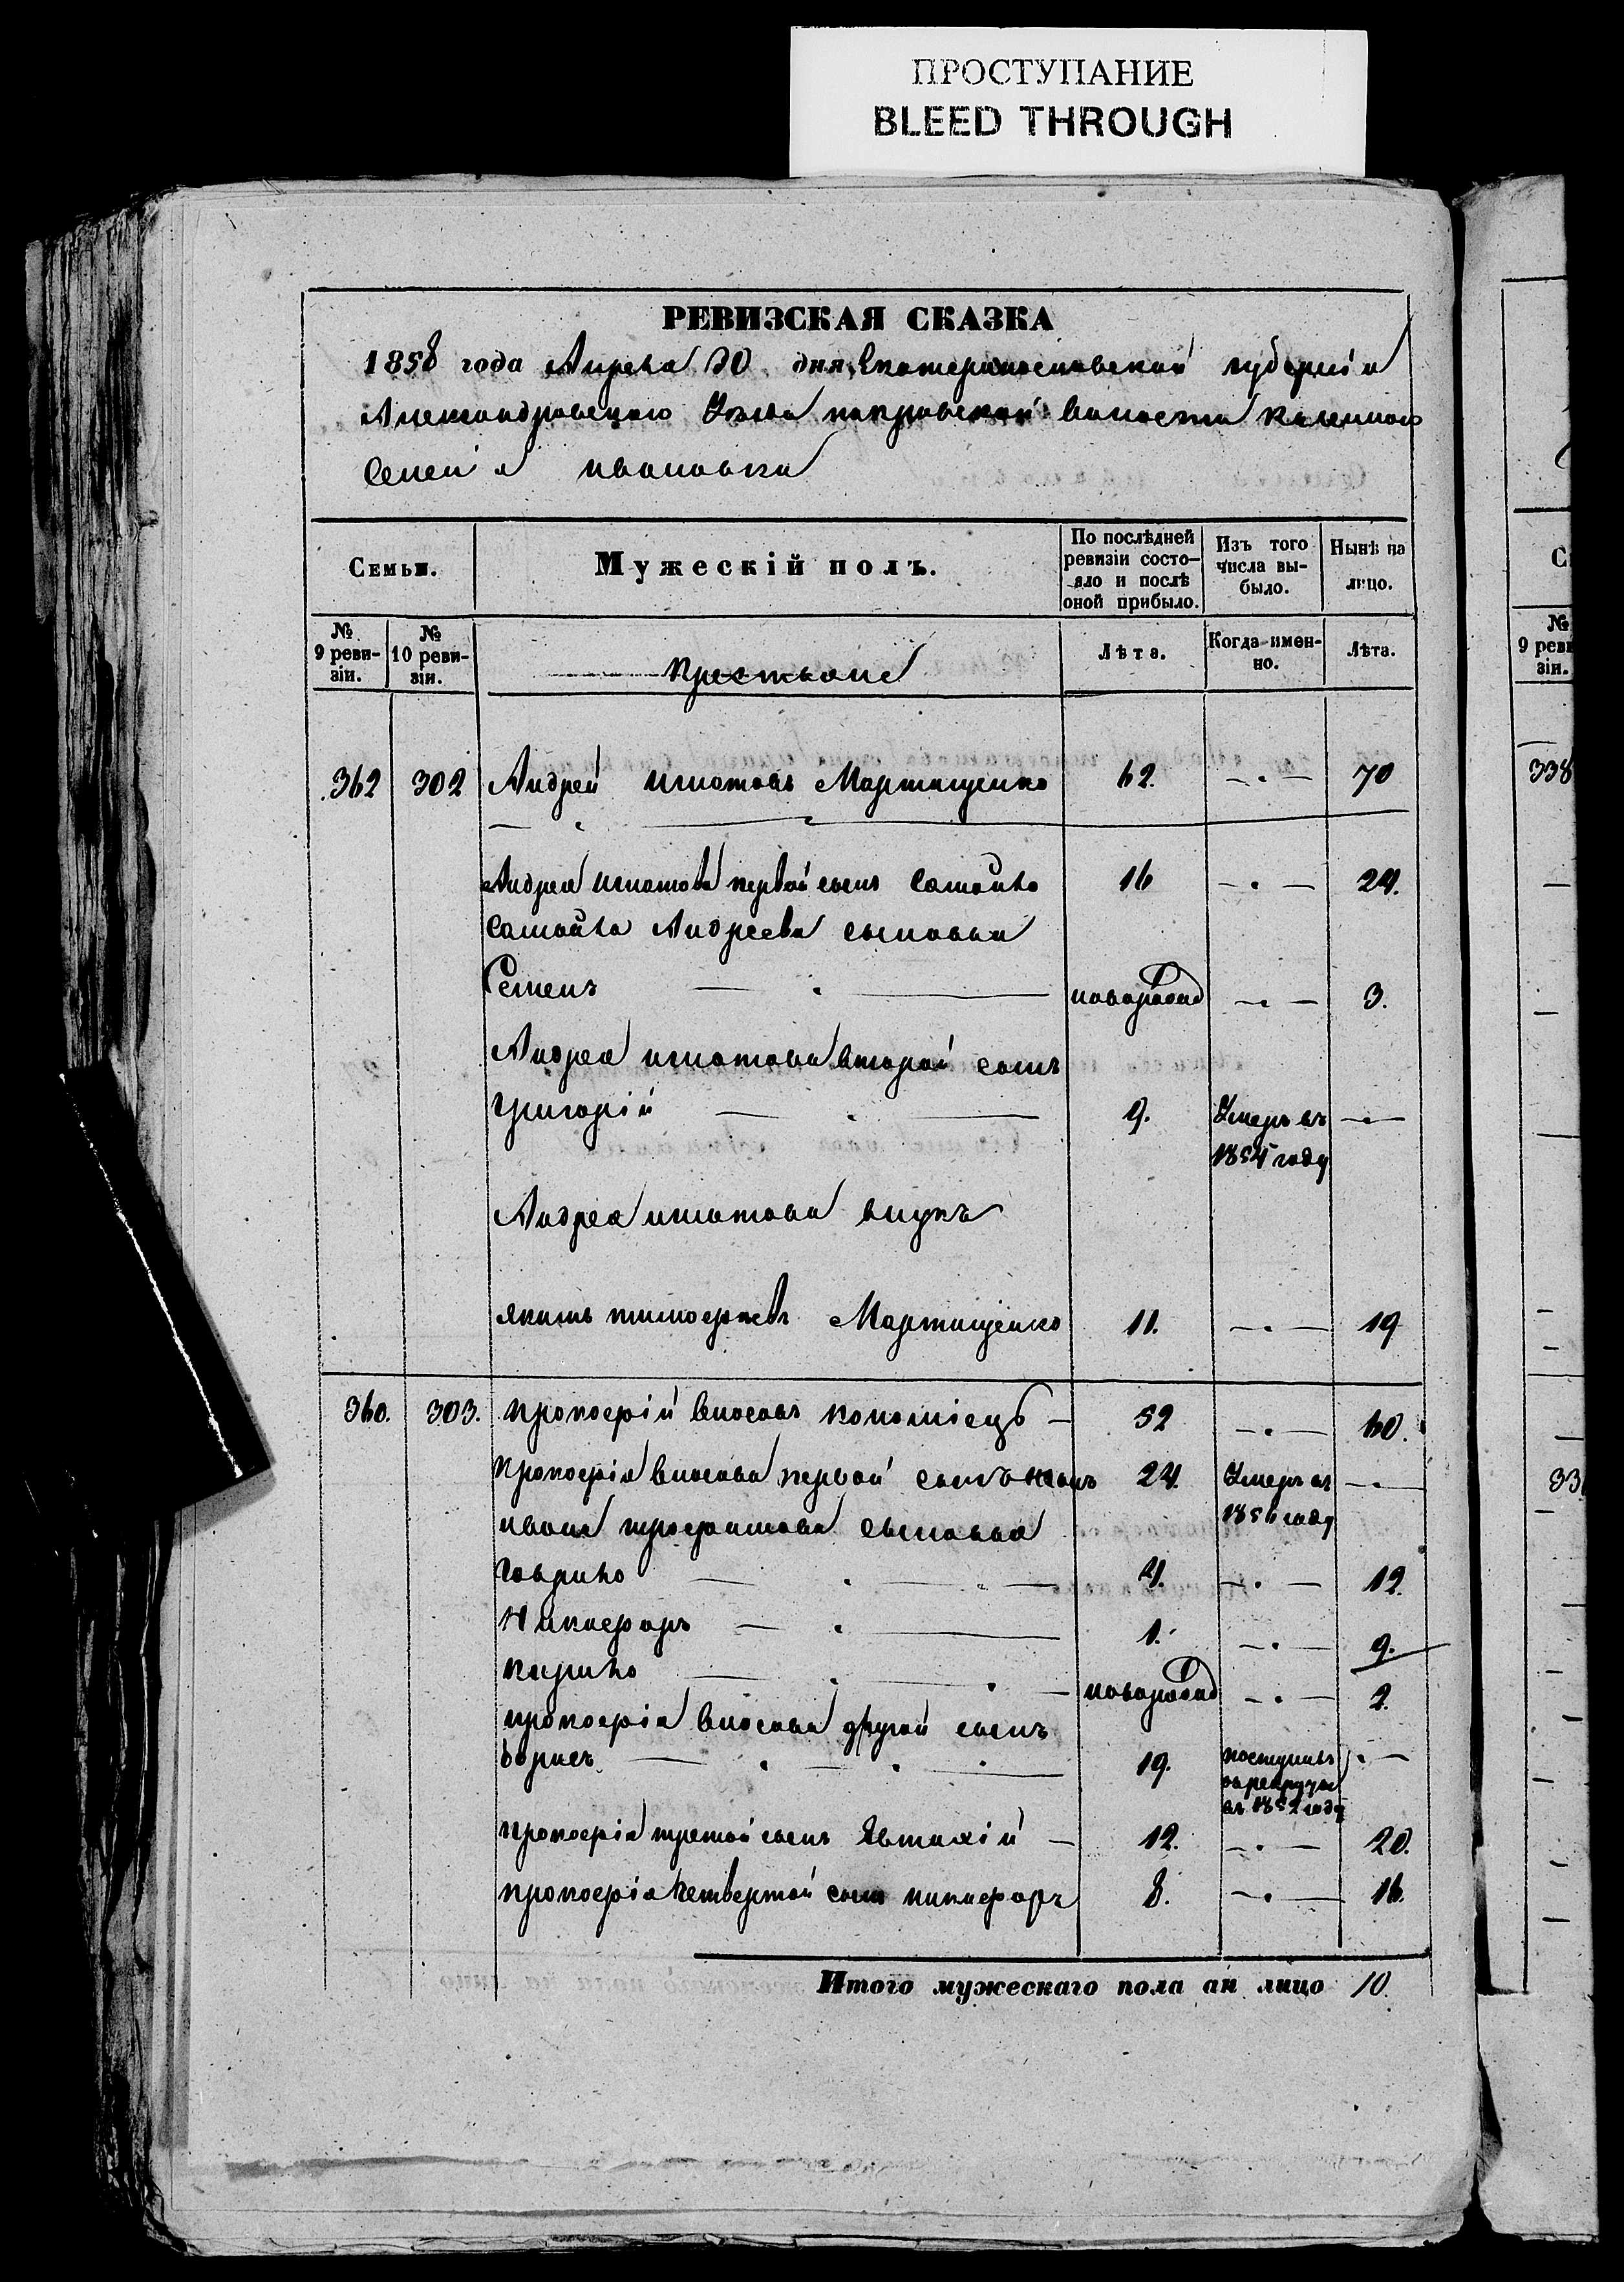 ПРОСТУПАНИЕ
BLEED THROUGH
РЕВИЗСКАЯ СКАЗКА
1858 года Апреля 30 дня, Екатеринославской губернiи
Александровского Уезда покровской волости казенного
Селенiя ивановки
Семьи.
Мужескiй полъ.
По послѣдней ревизiи состояло и послѣ оной прибыло.
Изъ того числа выбыло.
Нынѣ на лицо.
№ 9 ревизiи.
№ 10 ревизiи.
Крестьяне
Лѣта.
Когда именно.
Лѣта.
362 302 Андрей игнатовъ Мартыщенко 62. — 70
Андрея игнатова первой сынъ Самойло 16 — 24.
Самойла Андреева сыновья
Семенъ — новорожд — 3.
Андрея игнатова второй сынъ
Григорiй — 9. Умеръ въ —
1854 году
Андрея игнатова внукъ
якимъ тимофеевъ Мартыщенко 11. — 19
360. 303. прокофiй власовъ коломiецъ — 52 — 60.
Прокофiя власова первой сынъ иванъ 24. Умеръ въ —
1856 году
ивана трофимова сыновья
Гаврило — 4. — 12.
Никифоръ — 1. — 9.
кирило — новорожд — 2.
прокофiя власова другой сынъ
борисъ — 19. поступилъ —
въ рекруты
въ 1852 году
прокофiя третой сынъ Явтихiй — 12. — 20.
прокофiя четвертой сынъ никифоръ 8. — 16.
Итого мужескаго пола ан лицо 10.
338
9 ревизiи.